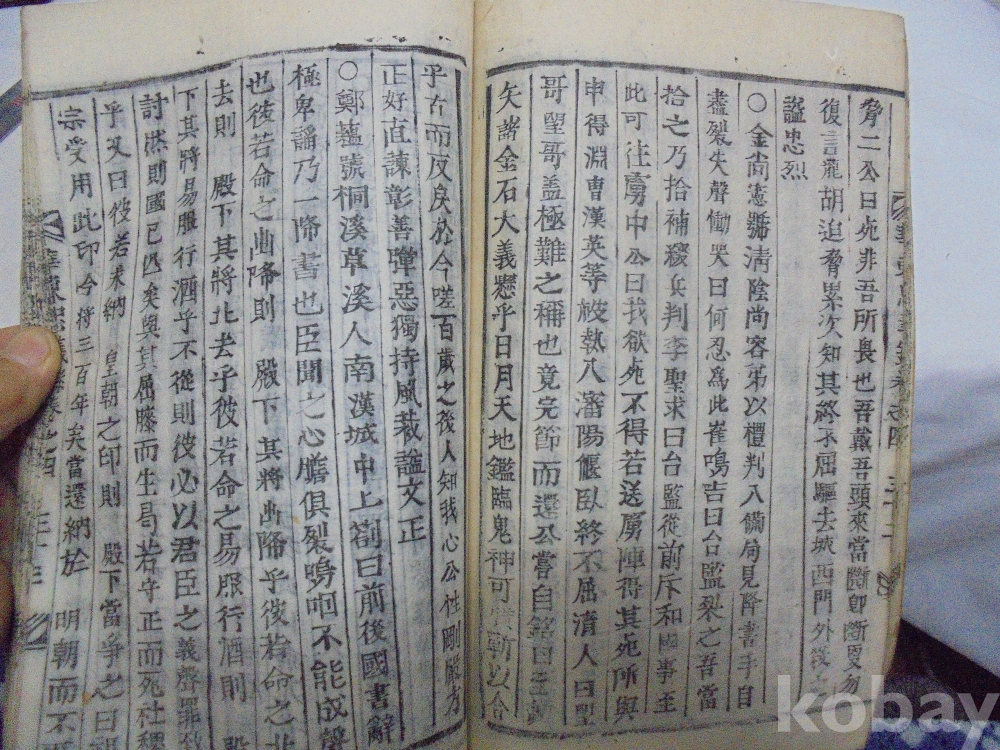 脅二公曰死非吾所畏也吾戴吾頭來當斷卽斷更勿
復言龍胡迫脅累次知其終不屈驅去城西門外
謚忠烈
○金尙憲號淸陰尚容弟以禮判入備局見降書手自
盡裂失聲慟哭曰何忍爲此崔鳴吉曰台監裂之吾當
拾之乃拾補綴兵判李聖求曰台監從前斥和國事至
此可往虜中公曰我欲死不得若送虜陣得其死所與
申得淵曺漢英等被執入瀋陽偃臥終不屈清人曰聖
哥聖哥盖極難之稱也竟完節而還公嘗自銘曰至
矢諸金石大義懸乎日月天地鑑臨鬼神可質蘄以合
乎古而反戾於今嗟百歲之後人知我心公性剛嚴方
正好直諫彰善彈惡獨持風裁謚文正
○鄭蘊號桐溪草溪人南漢城中上劄曰前後國書辭
極卑謟乃一降書也臣聞之心膽俱裂嗚咽不能成聲
也彼若命之出降則 殿下其將出降乎彼若命之北
去則 殿下其將北去乎彼若命之易服行酒則 殿
下其將易服行酒乎不從則彼必以君臣之義聲罪
討然則國已亡矣與其屈膝而生曷若守正而死社稷
乎又曰彼若求納 皇朝之印則 殿下當爭之曰
宗受用此印今將三百年矣當還納於 明朝而不
kobay